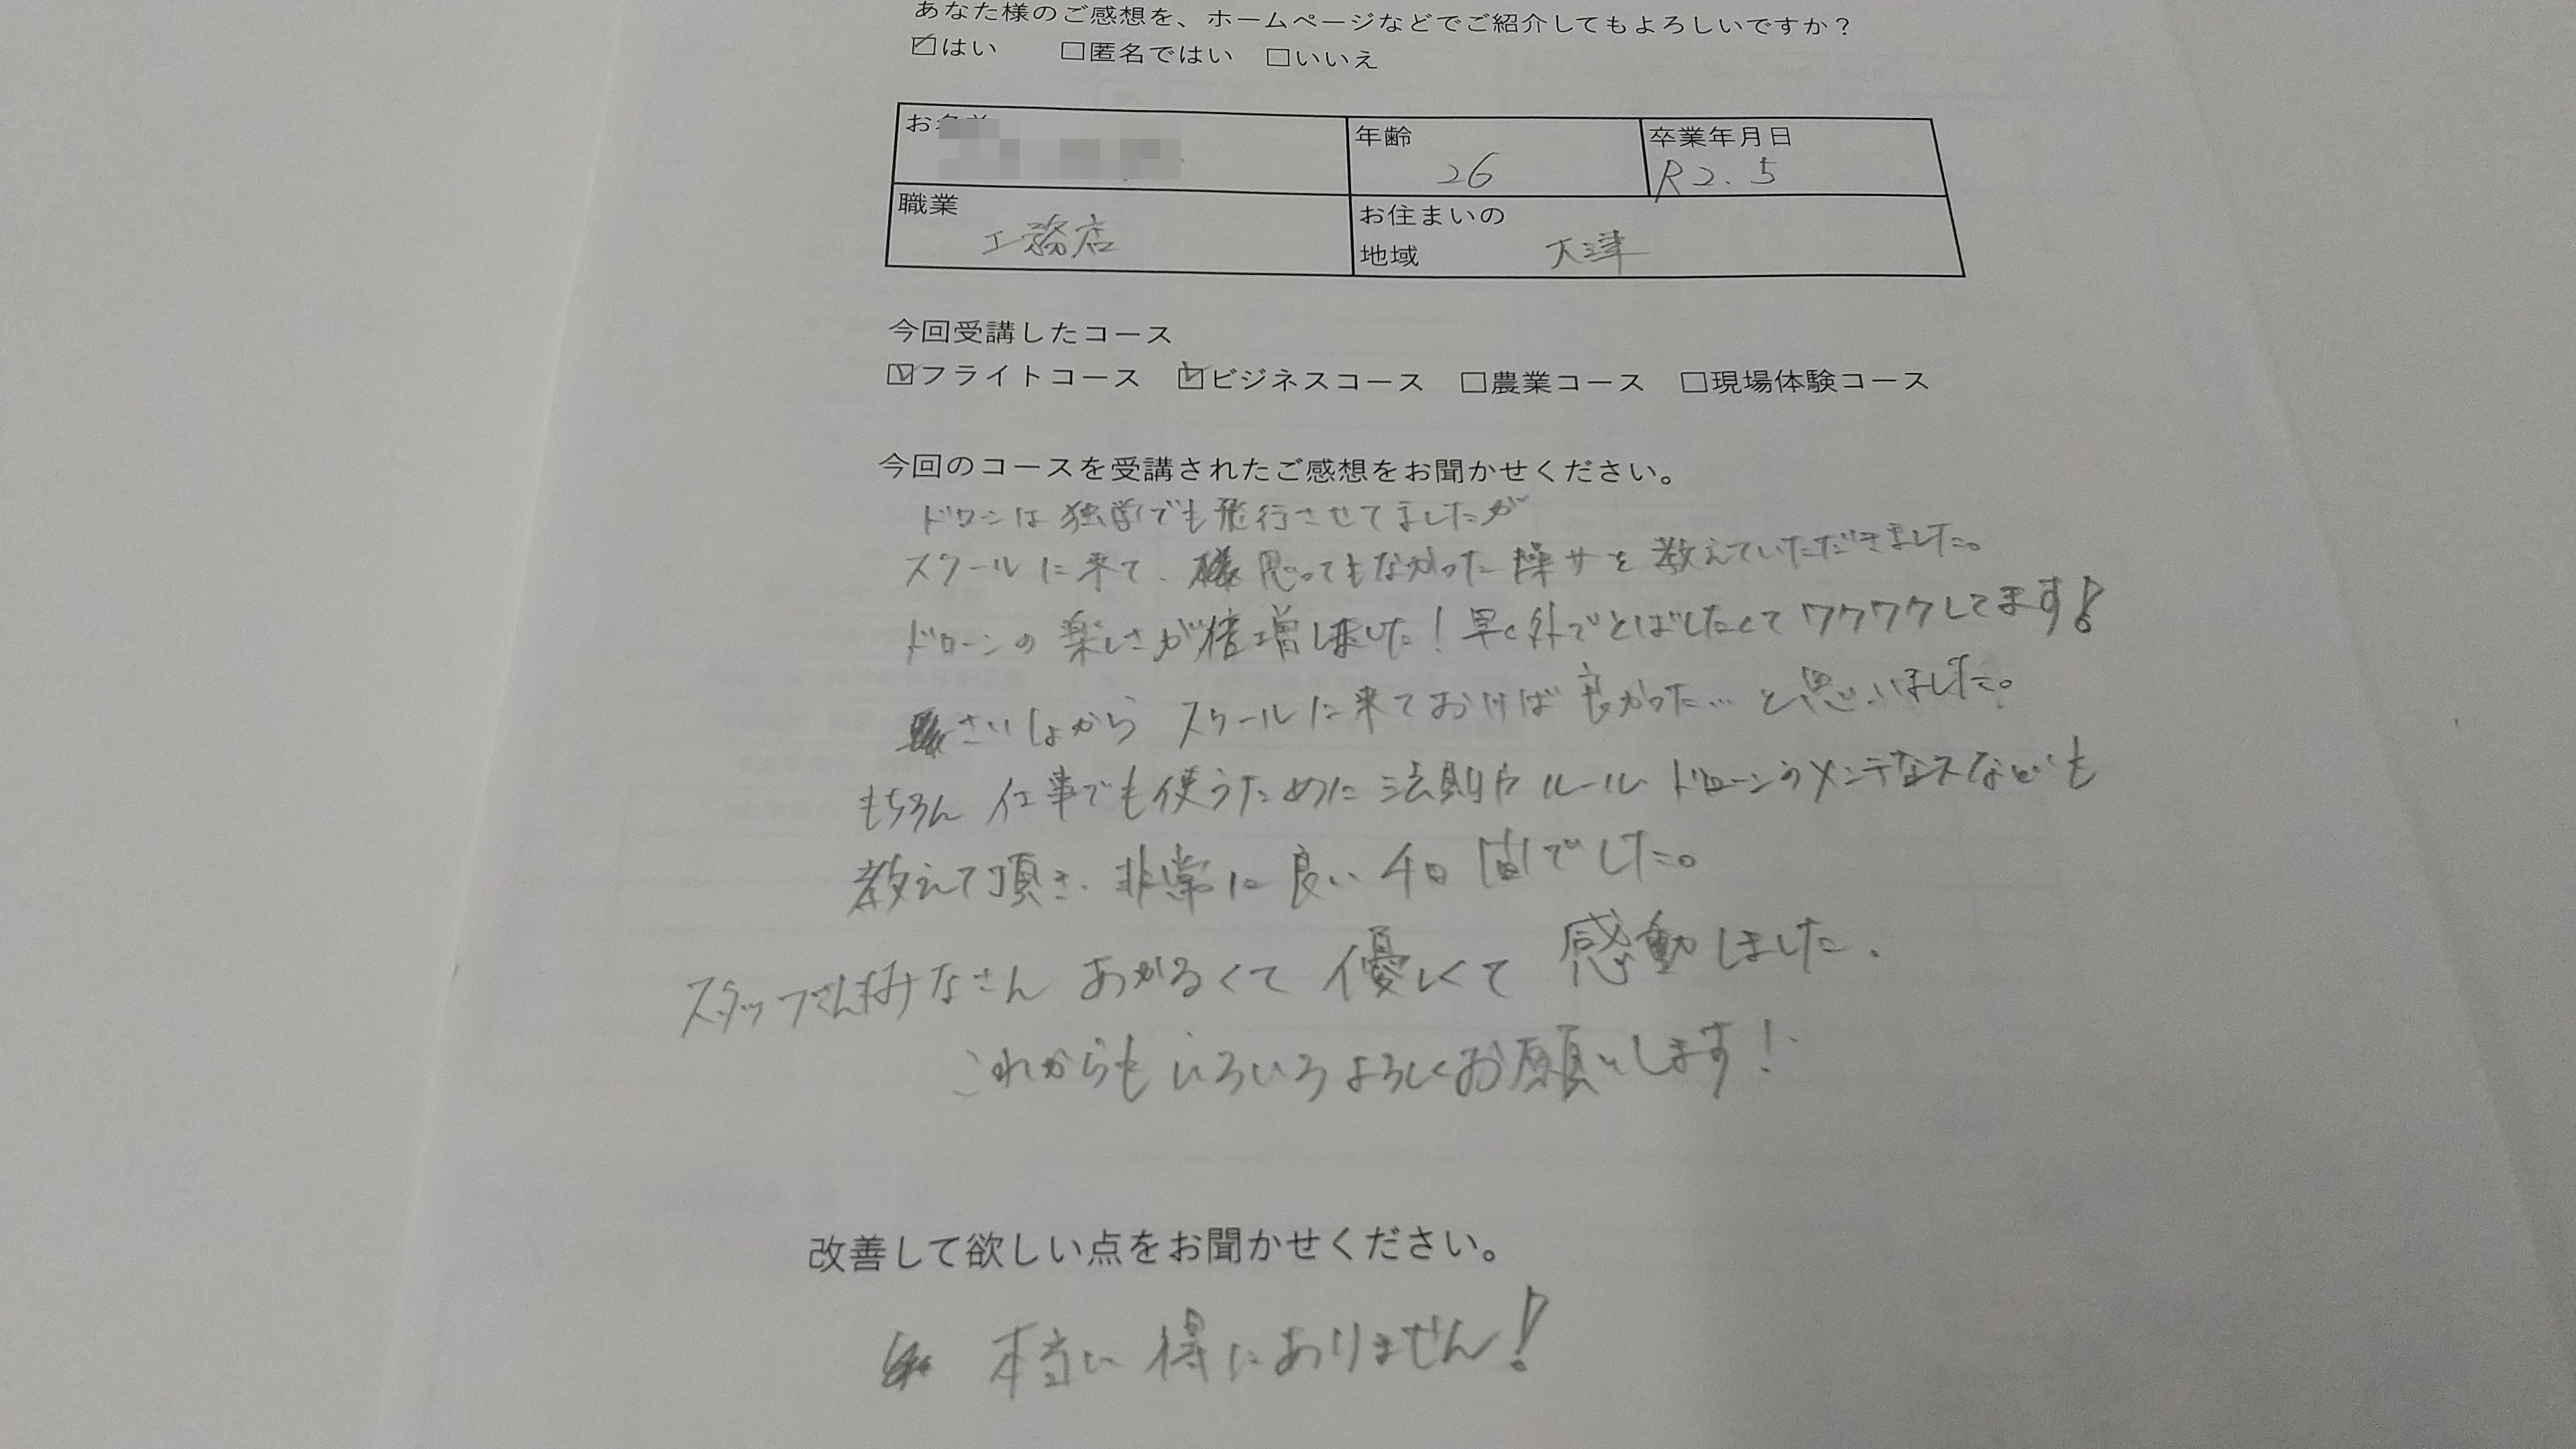 あなた様のご感想を、ホームページなどでご紹介してもよろしいですか?
☑はい □匿名ではい □いいえ
お名前
年齢 26
卒業年月日 R2.5
職業 工務店
お住まいの地域 大津
今回受講したコース
☑フライトコース ☑ビジネスコース □農業コース □現場体験コース
今回のコースを受講されたご感想をお聞かせください。
ドローンは独学でも飛行させてましたが
スクールに来て、思ってもなかった操サを教えていただきました。
ドローンの楽しさが倍増しました!早く外でとばしたくてワクワクしてます!
さいしょからスクールに来ておけば良かった…と思いました。
もちろん仕事でも使うために法則やルールドローンのメンテなスなども
教えて頂き、非常に良い4日間でした。
スタッフさんもみなさんあかるくて優しくて感動しました.
これからもいろいろよろしくお願いします!
改善して欲しい点をお聞かせください。
本当に得にありません!